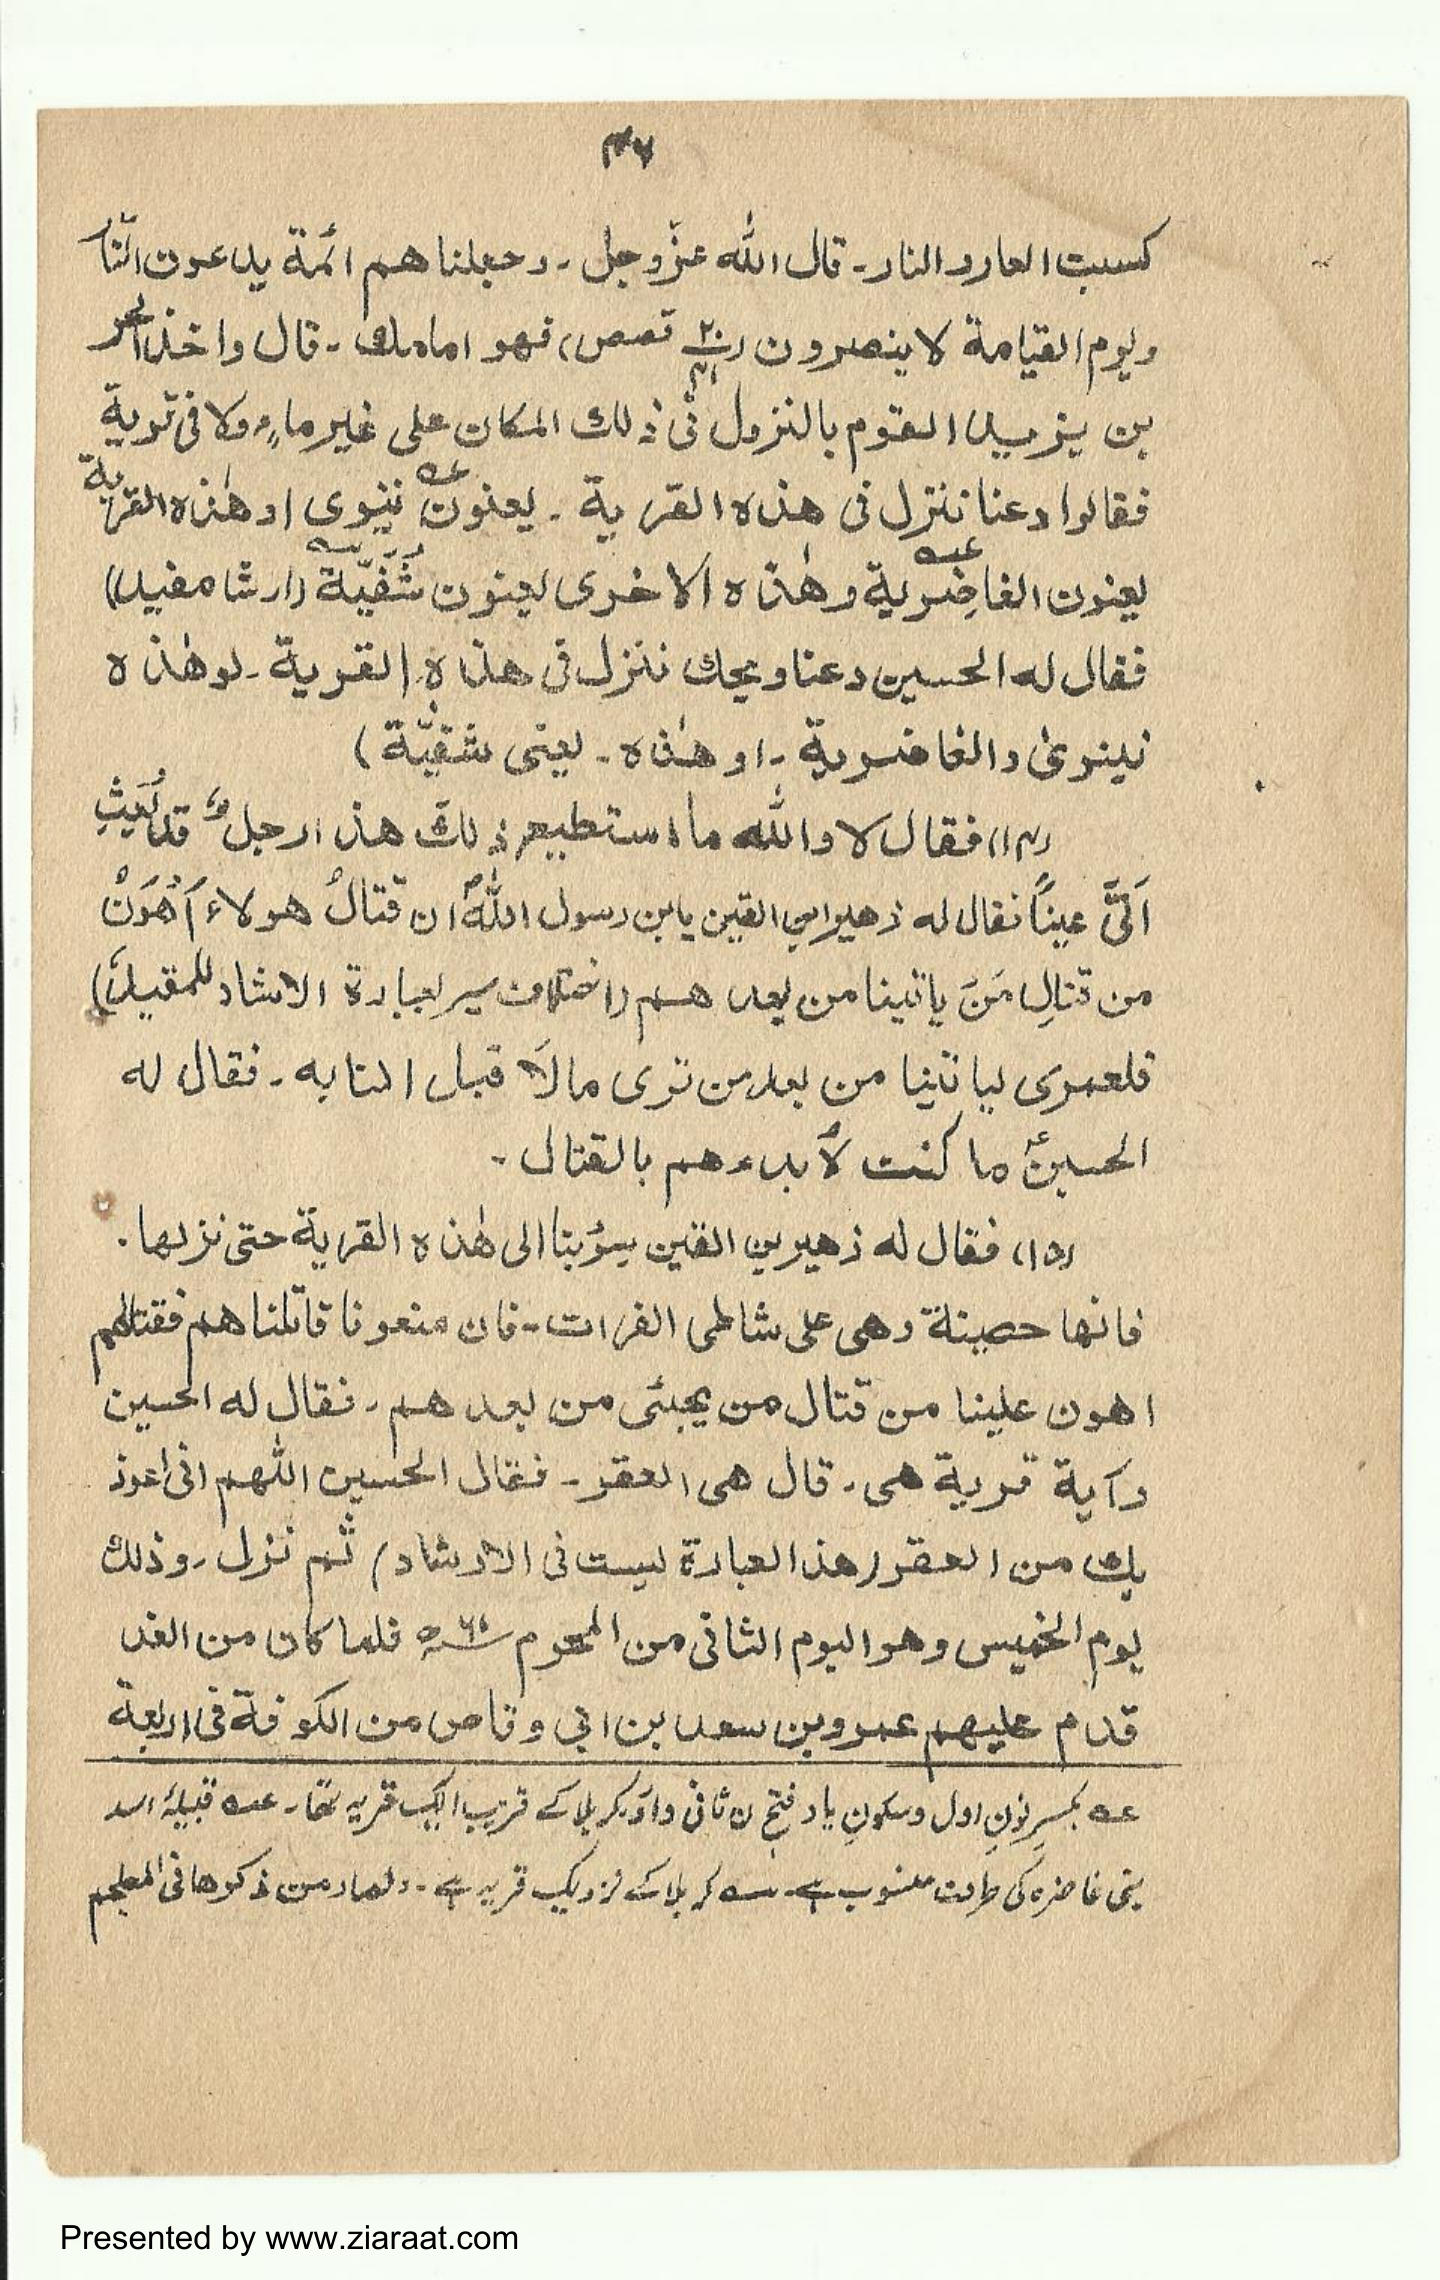 ۴۶
كسبت العار و النار۔ قال الله عزّ وجل۔ وجعلنا هم ائمة يدعون الی النار
ويوم القيامة لا ينصرون (۲۰/۴۱ قصص) فهو امامك۔ قال واخذ الحر
بن يزيد القوم بالنزول فی ذلك المكان علی غير ماءٍ ولا فی قرية
فقالوا دعنا ننزل فی هذه القرية ۔ يعنون نينوی او هٰذه القرية
يعنون الغاضِرية وهٰذه الاخری يعنون شُفَيّة (ارشاد مفيد)
فقال له الحسين دعنا ويحك ننزل فی هذه القرية۔ او هٰذه
نينوی والغاضرية ۔ او هٰذه ۔ يعنی شفيّة )
(۱۴) فقال لا والله ما استطيع ذلك هذا رجلٌ قد بُعِثَ
اَلَیَّ عيناً فقال له زهير ابن القين يابن رسول الله ان قتالُ هولاء اَهْوَنُ
من قتالِ مَنْ ياتينا من بعد هم (اختلاف سير بعبارة الارشاد للمفيد)
فلعمری لياتينا من بعد من تری مالَا قبل لنا به ۔ فقال له
الحسينؑ ما كنت لأبدءهم بالقتال ۔
(۱۵) فقال له زهير بن القين سِرْبنا الی هٰذه القرية حتی نزلها ۔
فانها حصينة وهی علی شاطی الفرات ۔ فان منعونا قاتلناهم فقتالهم
اهون علينا من قتال من يجیٔ من بعد هم ۔ فقال له الحسين
وآية قرية هی ۔ قال هی العقر ۔ فقال الحسين اللهم انی اعوذ
بك من العقر (هذا العبارة ليست فی الارشاد) ثم نزل ۔ وذلك
يوم الخميس وهو اليوم الثانی من المحرم ۶۱ھ فلما كان من الغد
قدم عليهم عمرو بن سعد بن ابی وقاص من الكوفة فی اربعة
عہ بکسرِ نونِ اول وسکونِ یاد فتحِ ن ثانی واوَ کربلا کے قریب ایک قریہ تھا ۔ عہ قبیلۂ اسد
بنی غاضرہ کی طرف منسوب ہے ۔ سہ کربلا کے نزدیک قریہ ہے ۔ من ذکرها فی المعجم
Presented by www.ziaraat.com